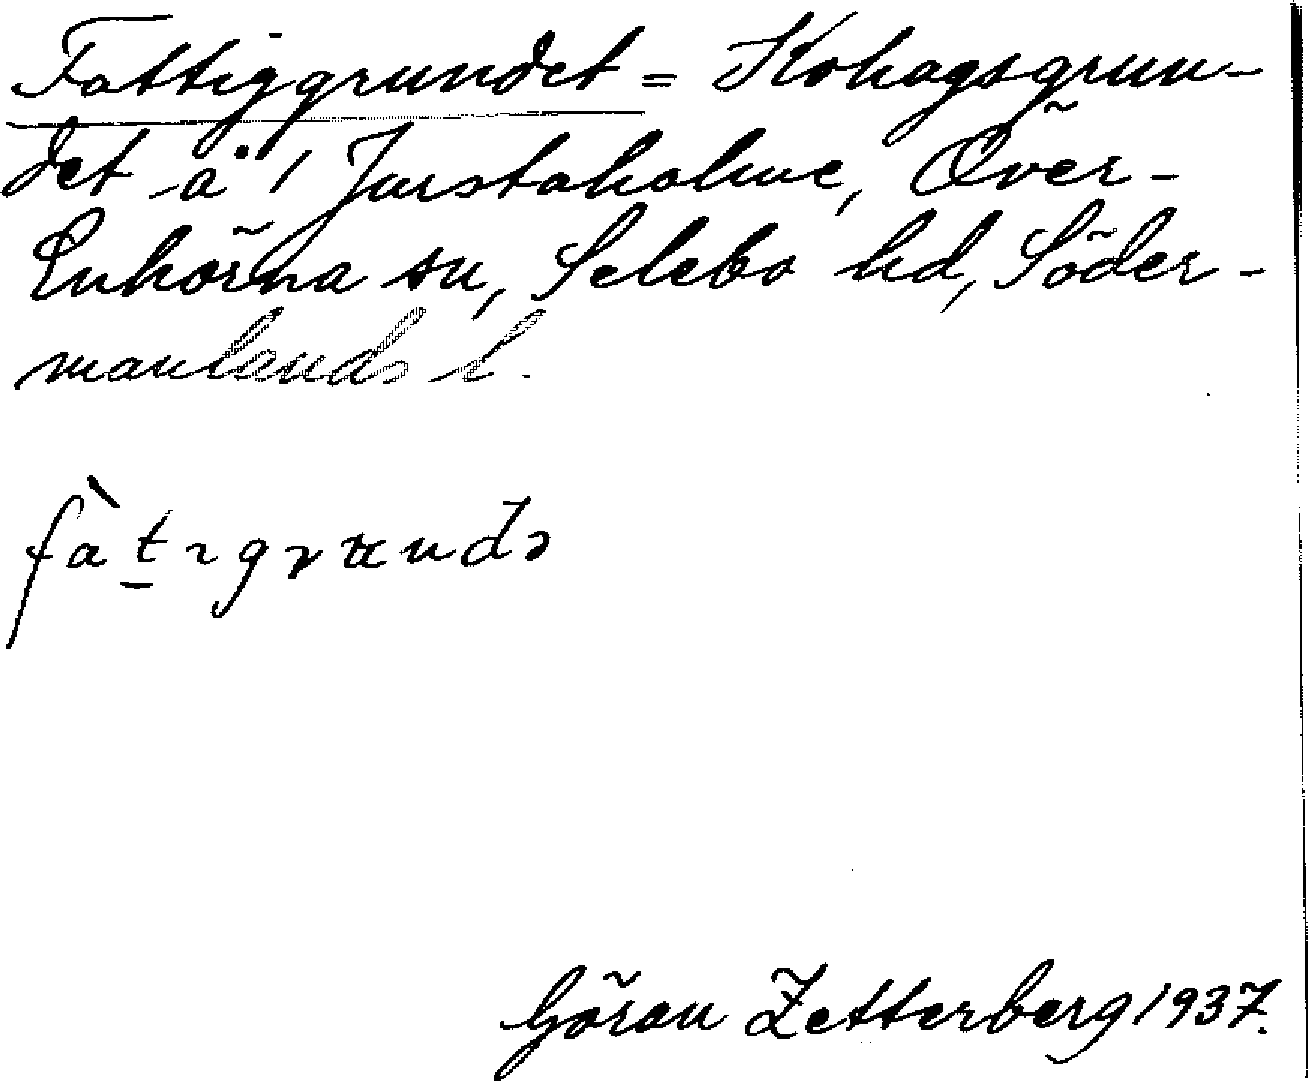 Fattiggrundet = Kohagsgrun-
det å 1 Jurstaholme, Över-
Enhörna sn, Selebo hd, Söder-
manlands l.
Göran Zetterberg 1937.